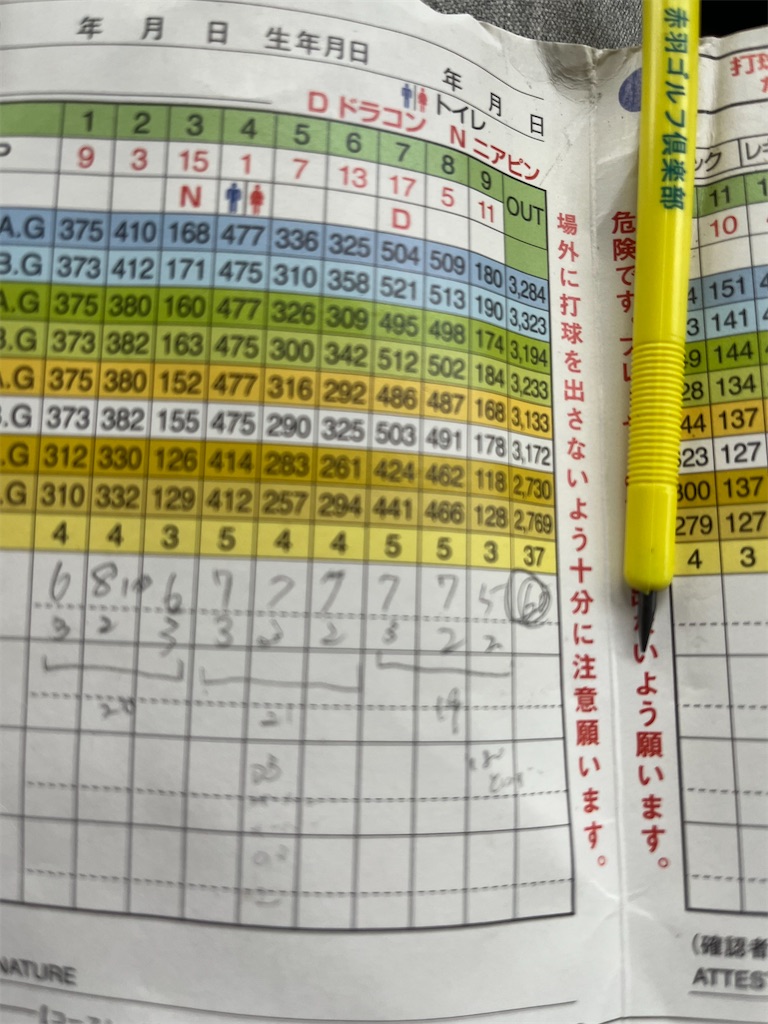 年 月 日 生年月日 年 月 日
トイレ
D ドラコン N ニアピン
1 2 3 4 5 6 7 8 9 OUT
P 9 3 15 1 7 13 17 5 11
N D
A.G 375 410 168 477 336 325 504 509 180 3,284
B.G 373 412 171 475 310 358 521 513 190 3,323
A.G 375 380 160 477 326 309 495 498 174 3,194
B.G 373 382 163 475 300 342 512 502 184 3,233
A.G 375 380 152 477 316 292 486 487 168 3,133
B.G 373 382 155 475 290 325 503 491 178 3,172
.G 312 330 126 414 283 261 424 462 118 2,730
.G 310 332 129 412 257 294 441 466 128 2,769
4 4 3 5 4 4 5 5 3 37
6 8 6 7 7 7 7 7 5
3 2 3 3 2 2 3 2 2
21 19
場外に打球を出さないよう十分に注意願います。
赤羽ゴルフ倶楽部
危険です。プレ
いよう願います。
打球
ック レギ
11
10
4 151
3 141
144
28 134
44 137
323 127
300 137
279 127
4 3
NATURE
(確認者
ATTEST
【コース